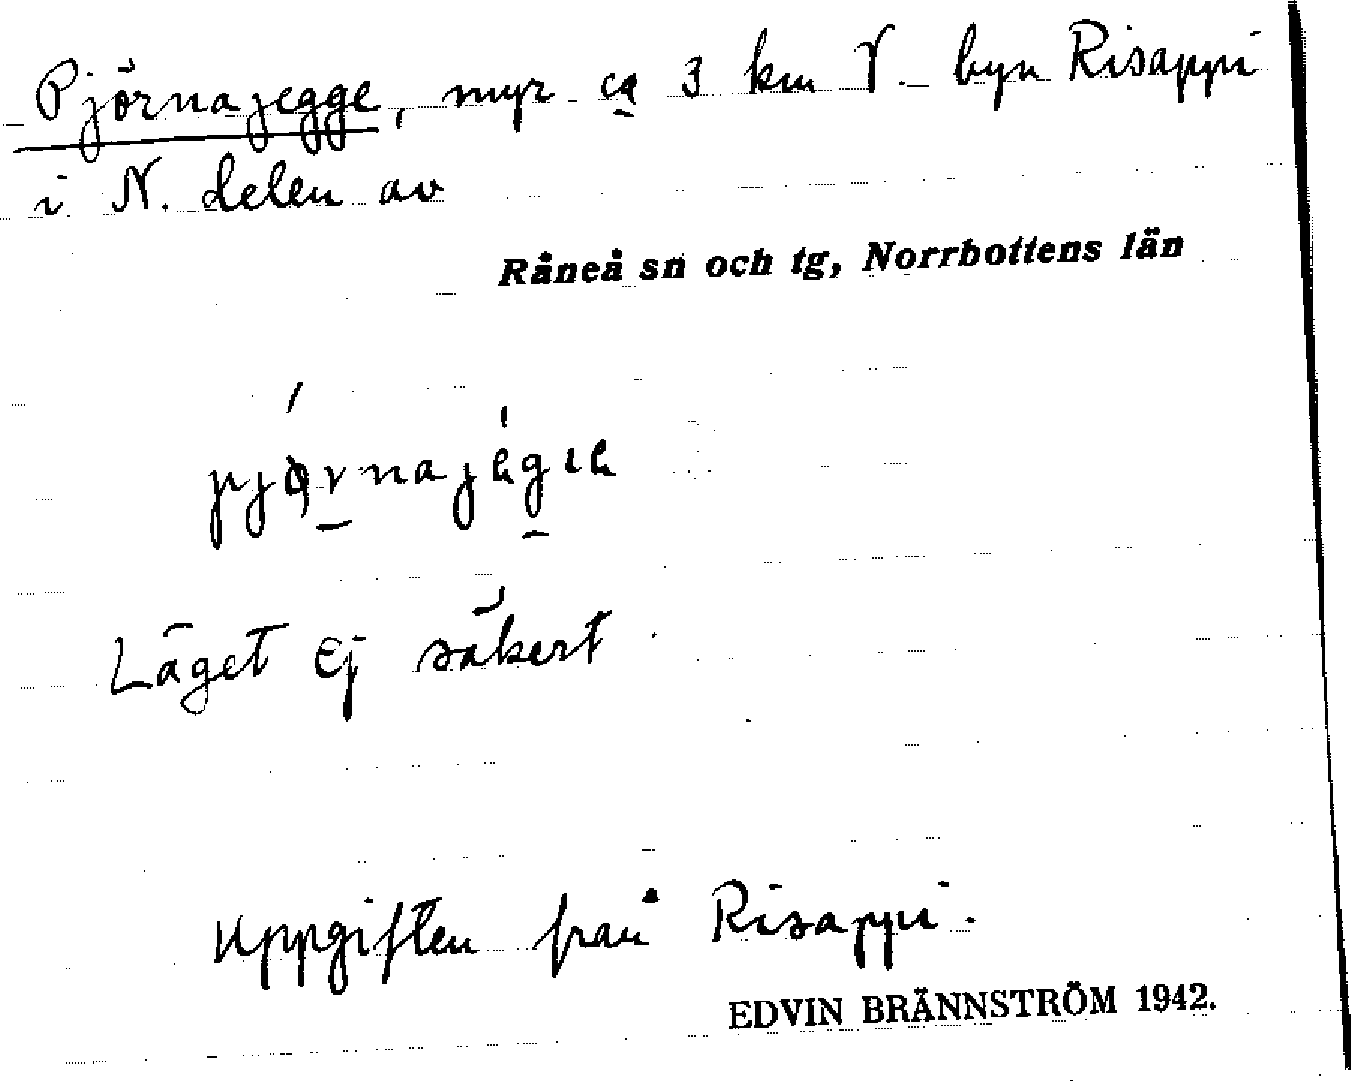 Pjörnajegge, myr ca 3 km V. byn Risappi
i N. delen av
Råneå sn och tg, Norrbottens län
Läget ej säkert
Uppgiften från Risappi.
EDVIN BRÄNNSTRÖM 1942.